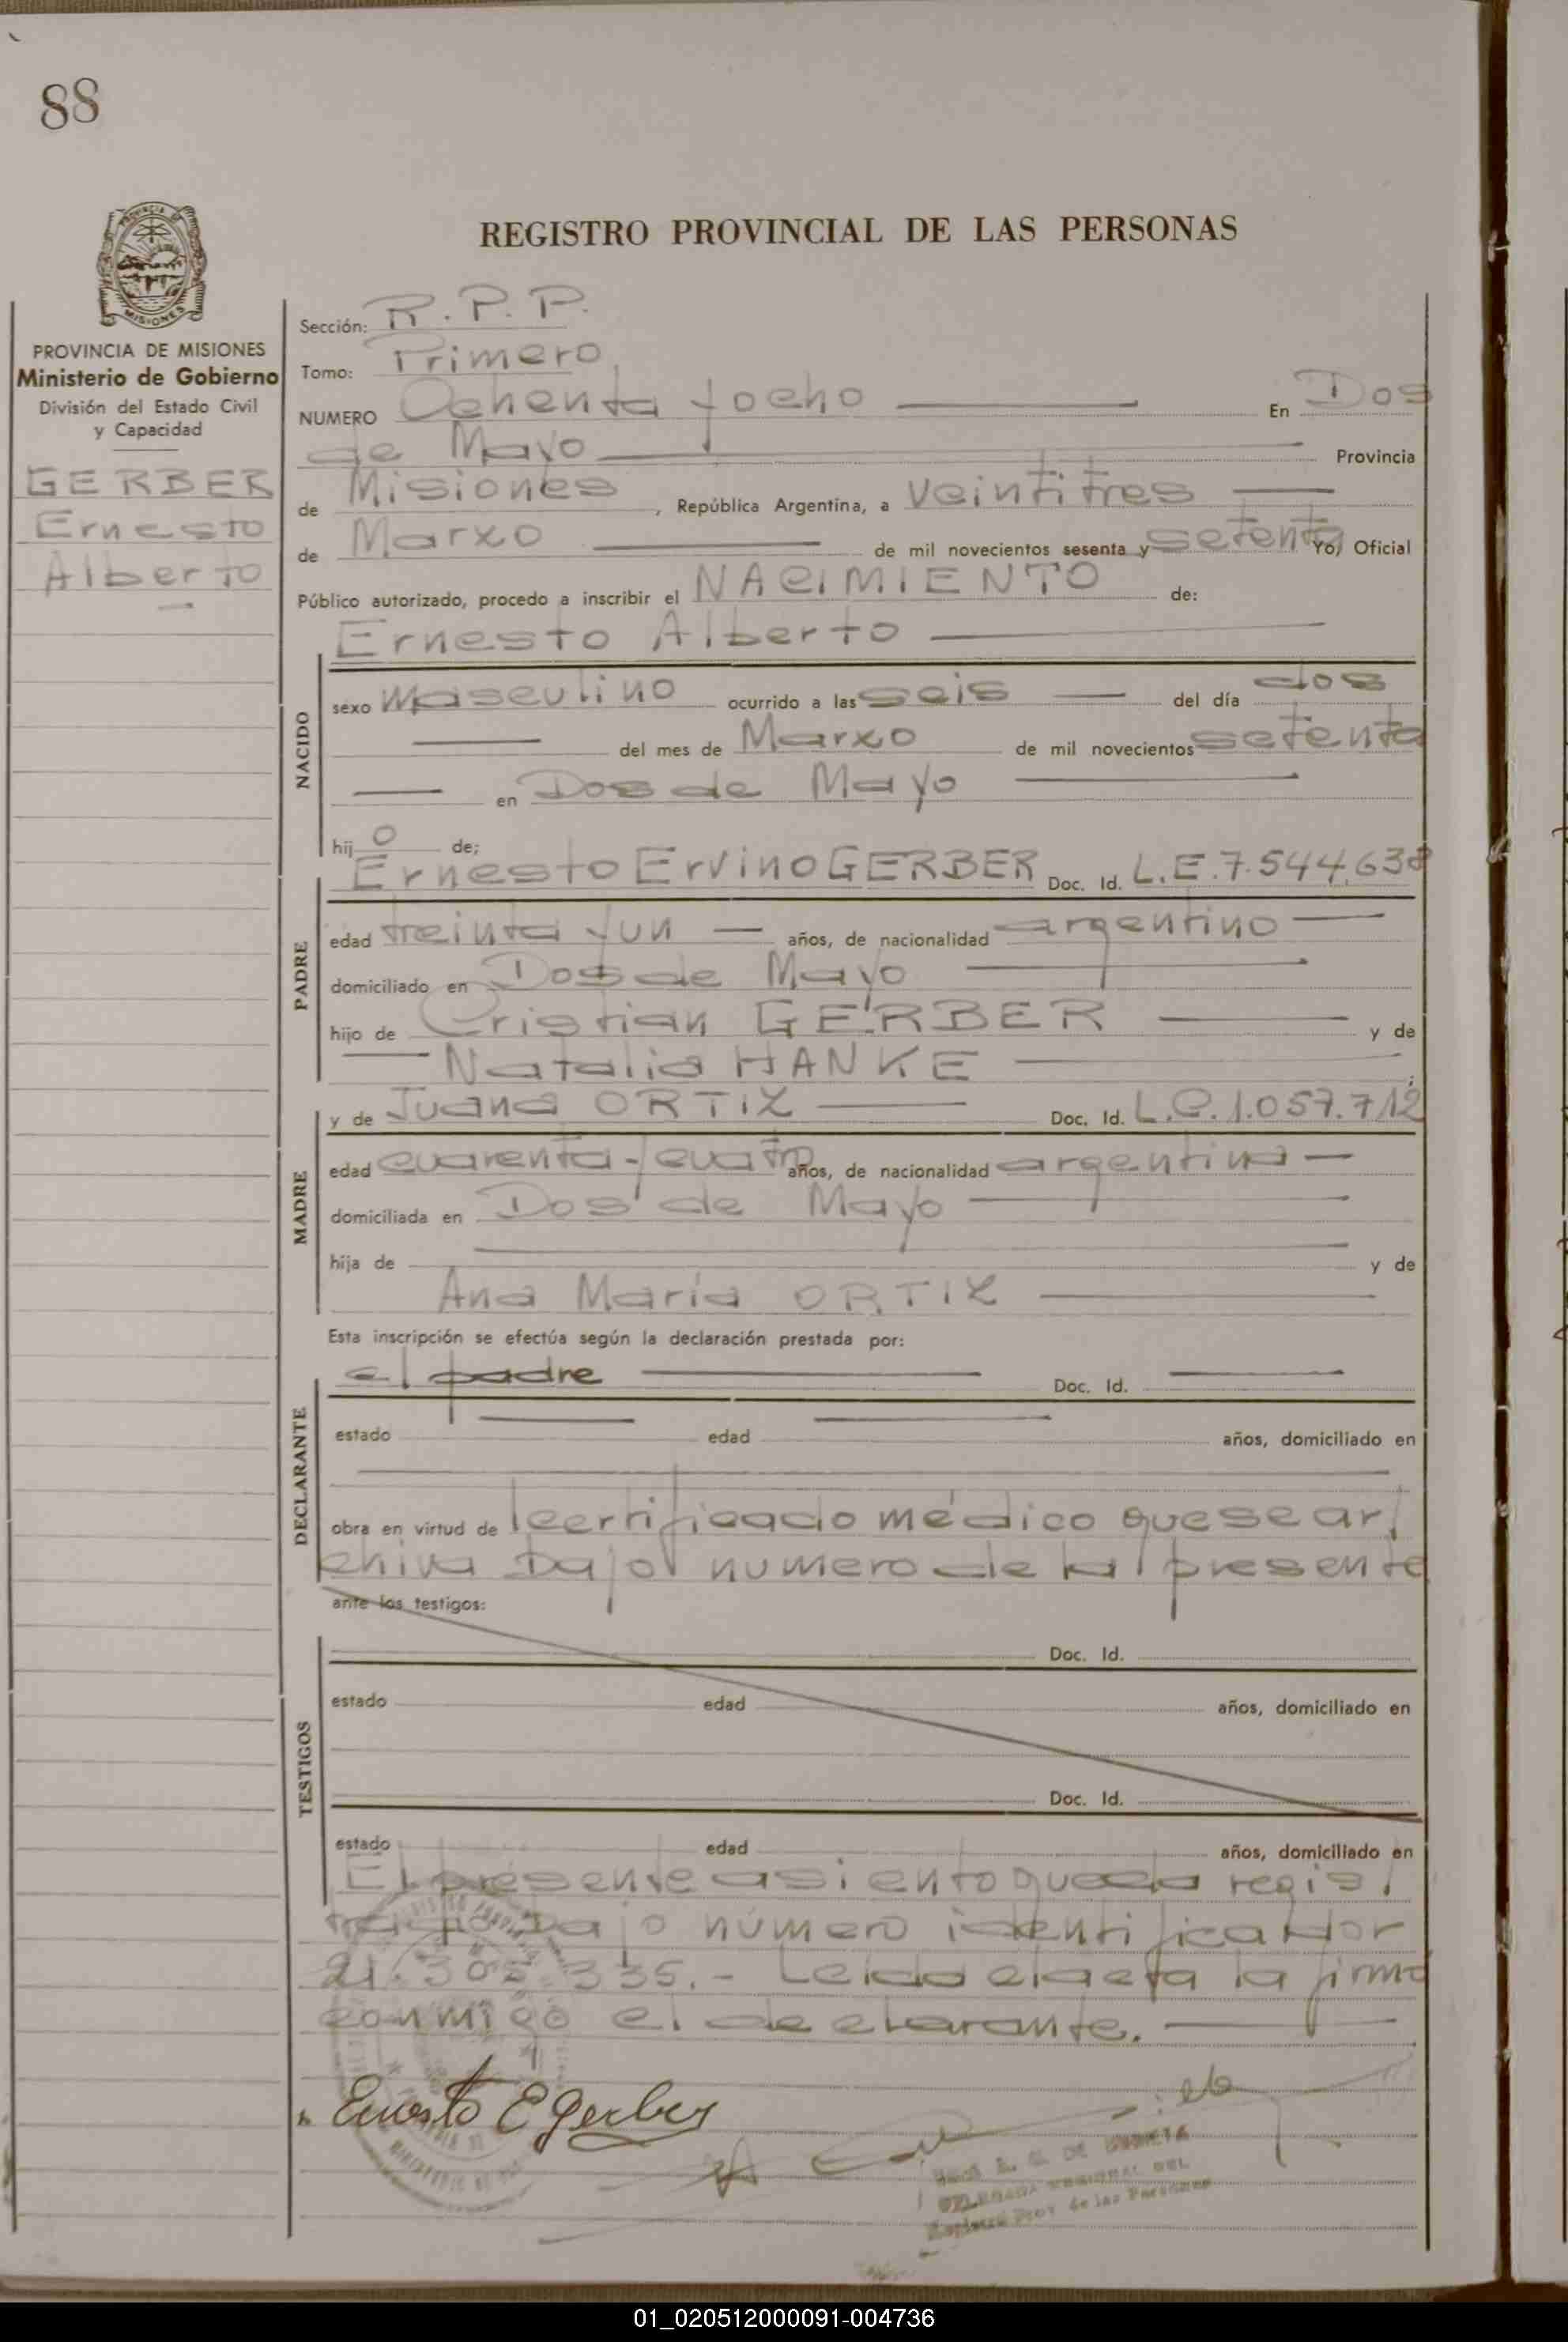 88
PROVINCIA DE
MISIONES
REGISTRO PROVINCIAL DE LAS PERSONAS
PROVINCIA DE MISIONES
Ministerio de Gobierno
División del Estado Civil
y Capacidad
GERBER
Ernesto
Alberto
Sección: R.P.P.
Tomo: Primero
NUMERO Ochenta y ocho En Dos
de Mayo Provincia
de Misiones, República Argentina, a veintitres
de Marzo de mil novecientos sesenta y setenta Yo, Oficial
Público autorizado, procedo a inscribir el NACIMIENTO de:
Ernesto Alberto
NACIDO
sexo masculino ocurrido a las seis del día dos
del mes de Marzo de mil novecientos setenta
en Dos de Mayo
hijo de;
Ernesto Ervino GERBER Doc. Id. L.E.7.544.638
PADRE
edad treinta y un años, de nacionalidad argentino
domiciliado en Dos de Mayo
hijo de Cristian GERBER y de
Natalia HANKE
y de Juana ORTIZ Doc. Id. L.C.1.057.712
MADRE
edad cuarenta y cuatro años, de nacionalidad argentina
domiciliada en Dos de Mayo
hija de y de
Ana María ORTIZ
Esta inscripción se efectúa según la declaración prestada por:
el padre Doc. Id.
DECLARANTE
estado edad años, domiciliado en
obra en virtud de certificado médico que se ar/
chiva bajo numero de la presente
ante los testigos:
Doc. Id.
TESTIGOS
estado edad años, domiciliado en
Doc. Id.
estado edad años, domiciliado en
El presente asiento queda regis/
trado bajo número identificador
21.305.335.- Leida el acta la firma
conmigo el declarante.
Ernesto E Gerber
DELEGADA REGIONAL DEL
Registro Prov. de las Personas
01_020512000091-004736